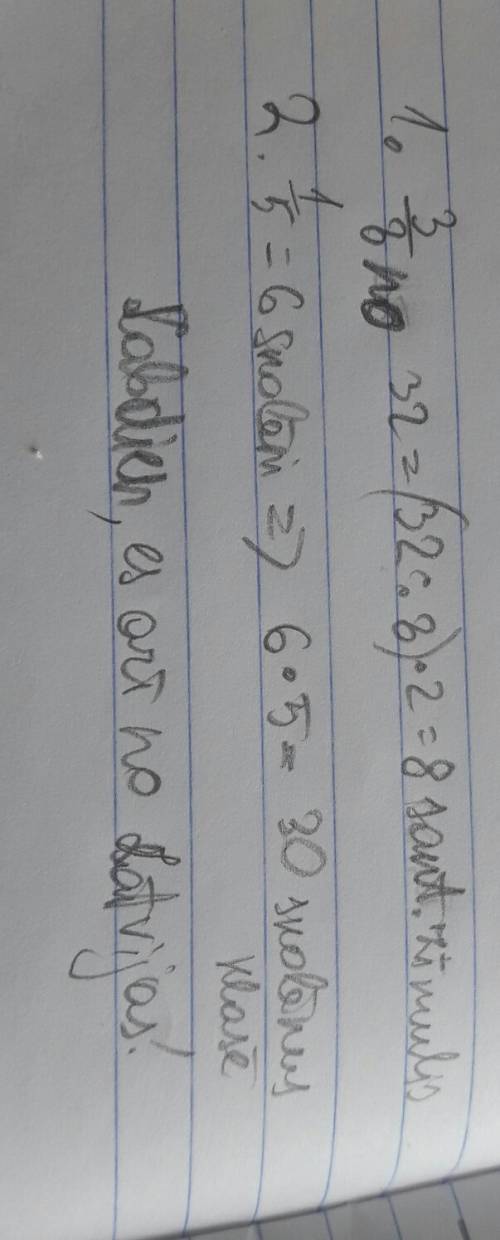 1. 3/8 no 32 = (32 : 8) · 2 = 8 sarit. zīmulis
2. 1/5 = 6 skolēni => 6 · 5 = 30 skolēnus
klasē
Labdien, es arī no Latvijas!